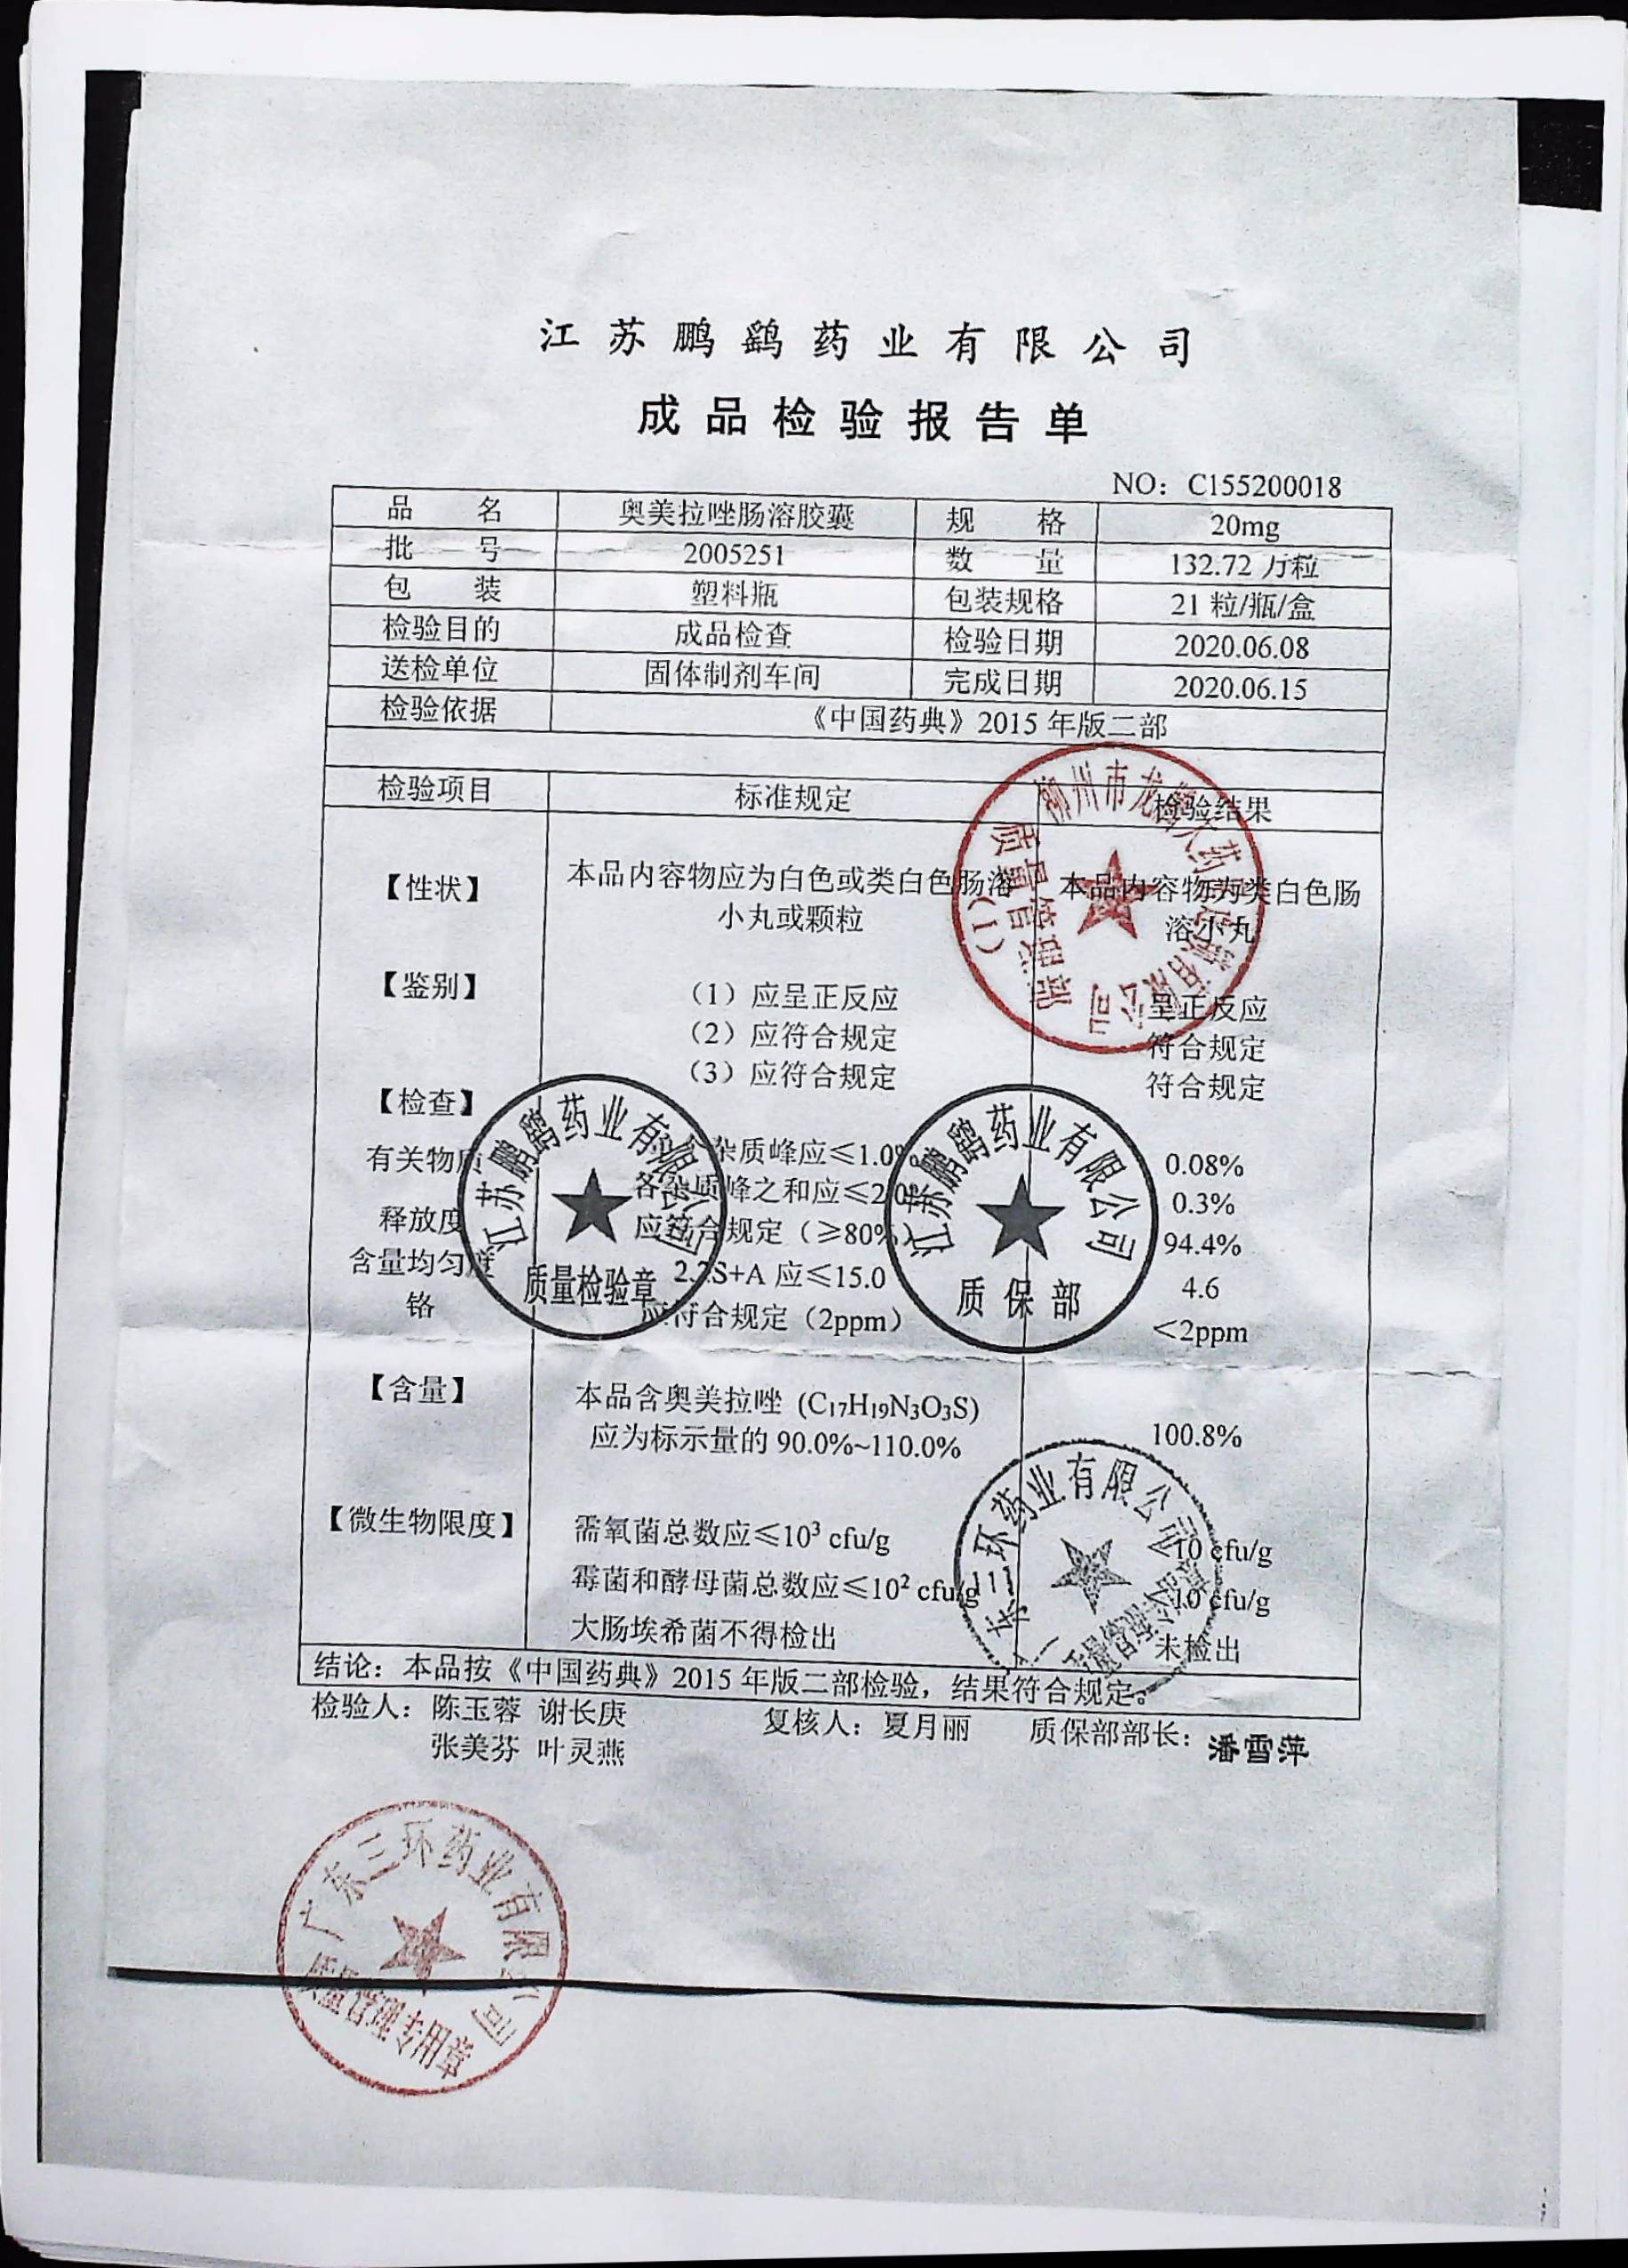 江苏鹏鹞药业有限公司
成品检验报告单
NO：C155200018
品 名 奥美拉唑肠溶胶囊 规 格 20mg
批 号 2005251 数 量 132.72 万粒
包 装 塑料瓶 包装规格 21 粒/瓶/盒
检验目的 成品检查 检验日期 2020.06.08
送检单位 固体制剂车间 完成日期 2020.06.15
检验依据 《中国药典》2015 年版二部
检验项目 标准规定 检验结果
【性状】 本品内容物应为白色或类白色肠溶 本品内容物为类白色肠
小丸或颗粒 溶小丸
【鉴别】 （1）应呈正反应 呈正反应
（2）应符合规定 符合规定
（3）应符合规定 符合规定
【检查】
有关物质 杂质峰应≤1.0% 0.08%
各杂质峰之和应≤2.0% 0.3%
释放度 应符合规定（≥80%） 94.4%
含量均匀度 2.2S+A 应≤15.0 4.6
铬 应符合规定（2ppm） ＜2ppm
【含量】 本品含奥美拉唑 (C₁₇H₁₉N₃O₃S)
应为标示量的 90.0%~110.0% 100.8%
【微生物限度】 需氧菌总数应≤10³ cfu/g <10 cfu/g
霉菌和酵母菌总数应≤10² cfu/g 10 cfu/g
大肠埃希菌不得检出 未检出
结论：本品按《中国药典》2015 年版二部检验，结果符合规定。
检验人：陈玉蓉 谢长庚 复核人：夏月丽 质保部部长：潘雪萍
张美芬 叶灵燕
江苏鹏鹞药业有限公司
质量检验章
江苏鹏鹞药业有限公司
质保部
质量管理部
（1）
东三环药业有限公司
广东三环药业有限公司
质量管理专用章